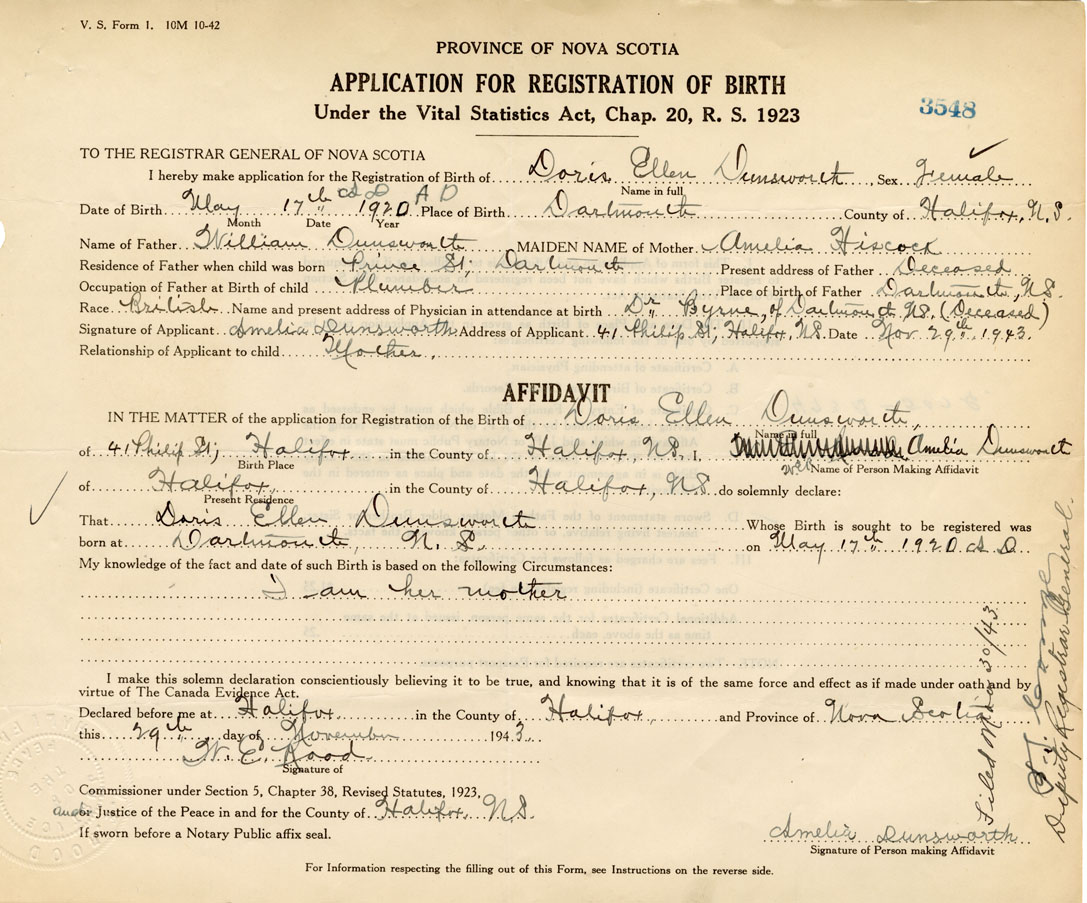 V. S. Form 1. 10M 10-42
PROVINCE OF NOVA SCOTIA
APPLICATION FOR REGISTRATION OF BIRTH
Under the Vital Statistics Act, Chap. 20, R. S. 1923
3548
TO THE REGISTRAR GENERAL OF NOVA SCOTIA
I hereby make application for the Registration of Birth of Doris Ellen Dunsworth, Sex Female
Name in full
Date of Birth May 17th 1920 A D Place of Birth Dartmouth County of Halifax, N.S.
Month Date Year
Name of Father William Dunsworth MAIDEN NAME of Mother Amelia Hiscock
Residence of Father when child was born Prince St; Dartmouth Present address of Father Deceased
Occupation of Father at Birth of child Plumber Place of birth of Father Dartmouth, N.S.
Race British Name and present address of Physician in attendance at birth Dr Byrne, of Dartmouth N.S. (Deceased)
Signature of Applicant Amelia Dunsworth Address of Applicant 41 Philip St; Halifax, N.S. Date Nov. 29th 1943.
Relationship of Applicant to child Mother,
AFFIDAVIT
IN THE MATTER of the application for Registration of the Birth of Doris Ellen Dunsworth,
Name in full
of 41 Philip St; Halifax in the County of Halifax, N.S. I, Amelia Dunsworth
Birth Place Name of Person Making Affidavit
of Halifax, in the County of Halifax, N.S. do solemnly declare:
Present Residence
That Doris Ellen Dunsworth Whose Birth is sought to be registered was
born at Dartmouth, N. S. on May 17th 1920 A D
My knowledge of the fact and date of such Birth is based on the following Circumstances:
I am her mother
I make this solemn declaration conscientiously believing it to be true, and knowing that it is of the same force and effect as if made under oath and by
virtue of The Canada Evidence Act.
Declared before me at Halifax in the County of Halifax, and Province of Nova Scotia
this 29th day of November 1943.
W. E. Rood
Signature of
Commissioner under Section 5, Chapter 38, Revised Statutes, 1923,
and/or Justice of the Peace in and for the County of Halifax, N.S.
If sworn before a Notary Public affix seal.
Amelia Dunsworth
Signature of Person making Affidavit
For Information respecting the filling out of this Form, see Instructions on the reverse side.
Filed 30/43
Deputy Registrar General.